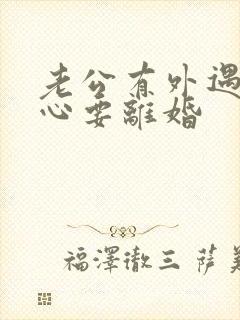 老公有外遇
心要離婚
福澤徹三 薩